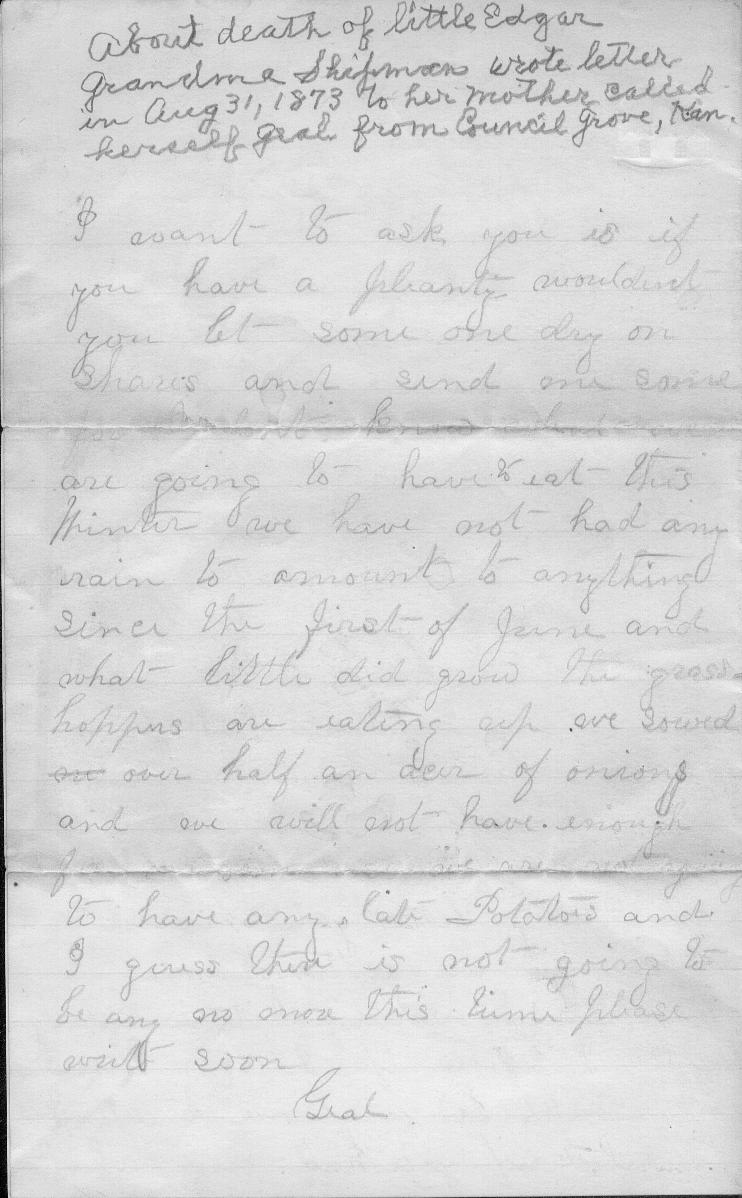 About death of little Edgar
Grandma Shipman wrote letter
in Aug 31, 1873 to her mother called
herself Geal from Council Grove, Kan.
I want to ask you is if
you have a pleanty wouldent
you let some one dry on
shares and send me some
for I dont know what we
are going to have to eat this
Winter we have not had any
rain to amount to anything
since the first of June and
what little did grow the grass-
hoppers are eating up we sowed
over half an acer of onions
and we will not have enough
for we are not going
to have any late Potatoes and
I guess there is not going to
be any no more this time please
write soon
Geal